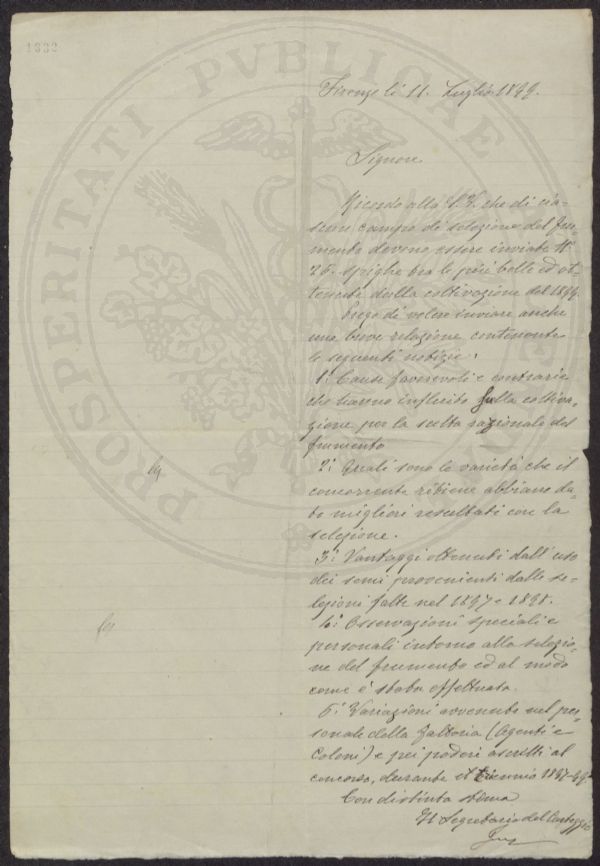 1832
PROSPERITATI PVBLICAE
Firenze li 11. Luglio 1899.
Signore
Ricordo alla S.V. che di cia-
scun campo di selezione del fru-
mento devono essere inviate N°
26. spighe tra le più belle ed ot-
tenute dalla coltivazione del 1899.
Prego di volere inviare anche
una breve relazione contenente
le seguenti notizie:
1° Cause favorevoli e contrarie
che hanno influito sulla coltiva-
zione per la scelta razionale del
frumento
2° Quali sono le varietà che il
concorrente ritiene abbiano da-
to migliori resultati con la
selezione.
3° Vantaggi ottenuti dall'uso
dei semi provenienti dalle se-
lezioni fatte nel 1897 e 1898.
4° Osservazioni speciali e
personali intorno alla selezio-
ne del frumento ed al modo
come è stata effettuata.
5° Variazioni avvenute nel per-
sonale della fattoria (Agenti e
Coloni) e pei poderi ascritti al
concorso, durante il triennio 1897-99
Con distinta stima
Il Segretario del Carteggio